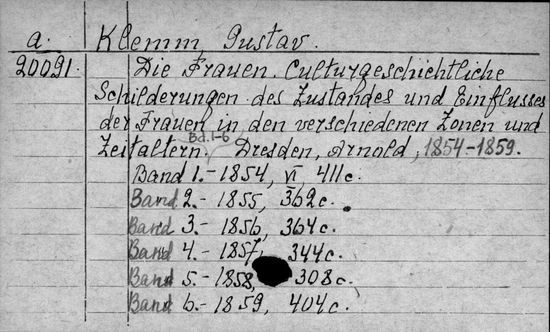 a. Klemm, Gustav.
20091. Die Frauen. Culturgeschichtliche
Schilderungen des Zustandes und Einflusses
der Frauen in den verschiedenen Zonen und
Zeitaltern. Bd. 1-6 Dresden, Arnold, 1854-1859.
Band 1.- 1854, VI 411 c.
Band 2.- 1855, 362 c.
Band 3.- 1856, 364 c.
Band 4.- 1857, 344 c.
Band 5.- 1858, 308 c.
Band 6.- 1859, 404 c.